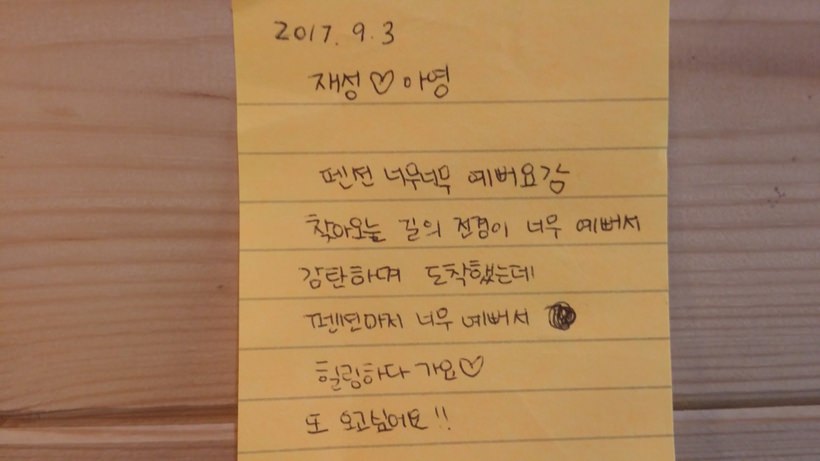 2017. 9. 3
재성♡아영
펜션 너무너무 예뻐요감
찾아오는 길의 전경이 너무 예뻐서
감탄하며 도착했는데
펜션마저 너무 예뻐서
힐링하다 가요♡
또 오고싶어요!!